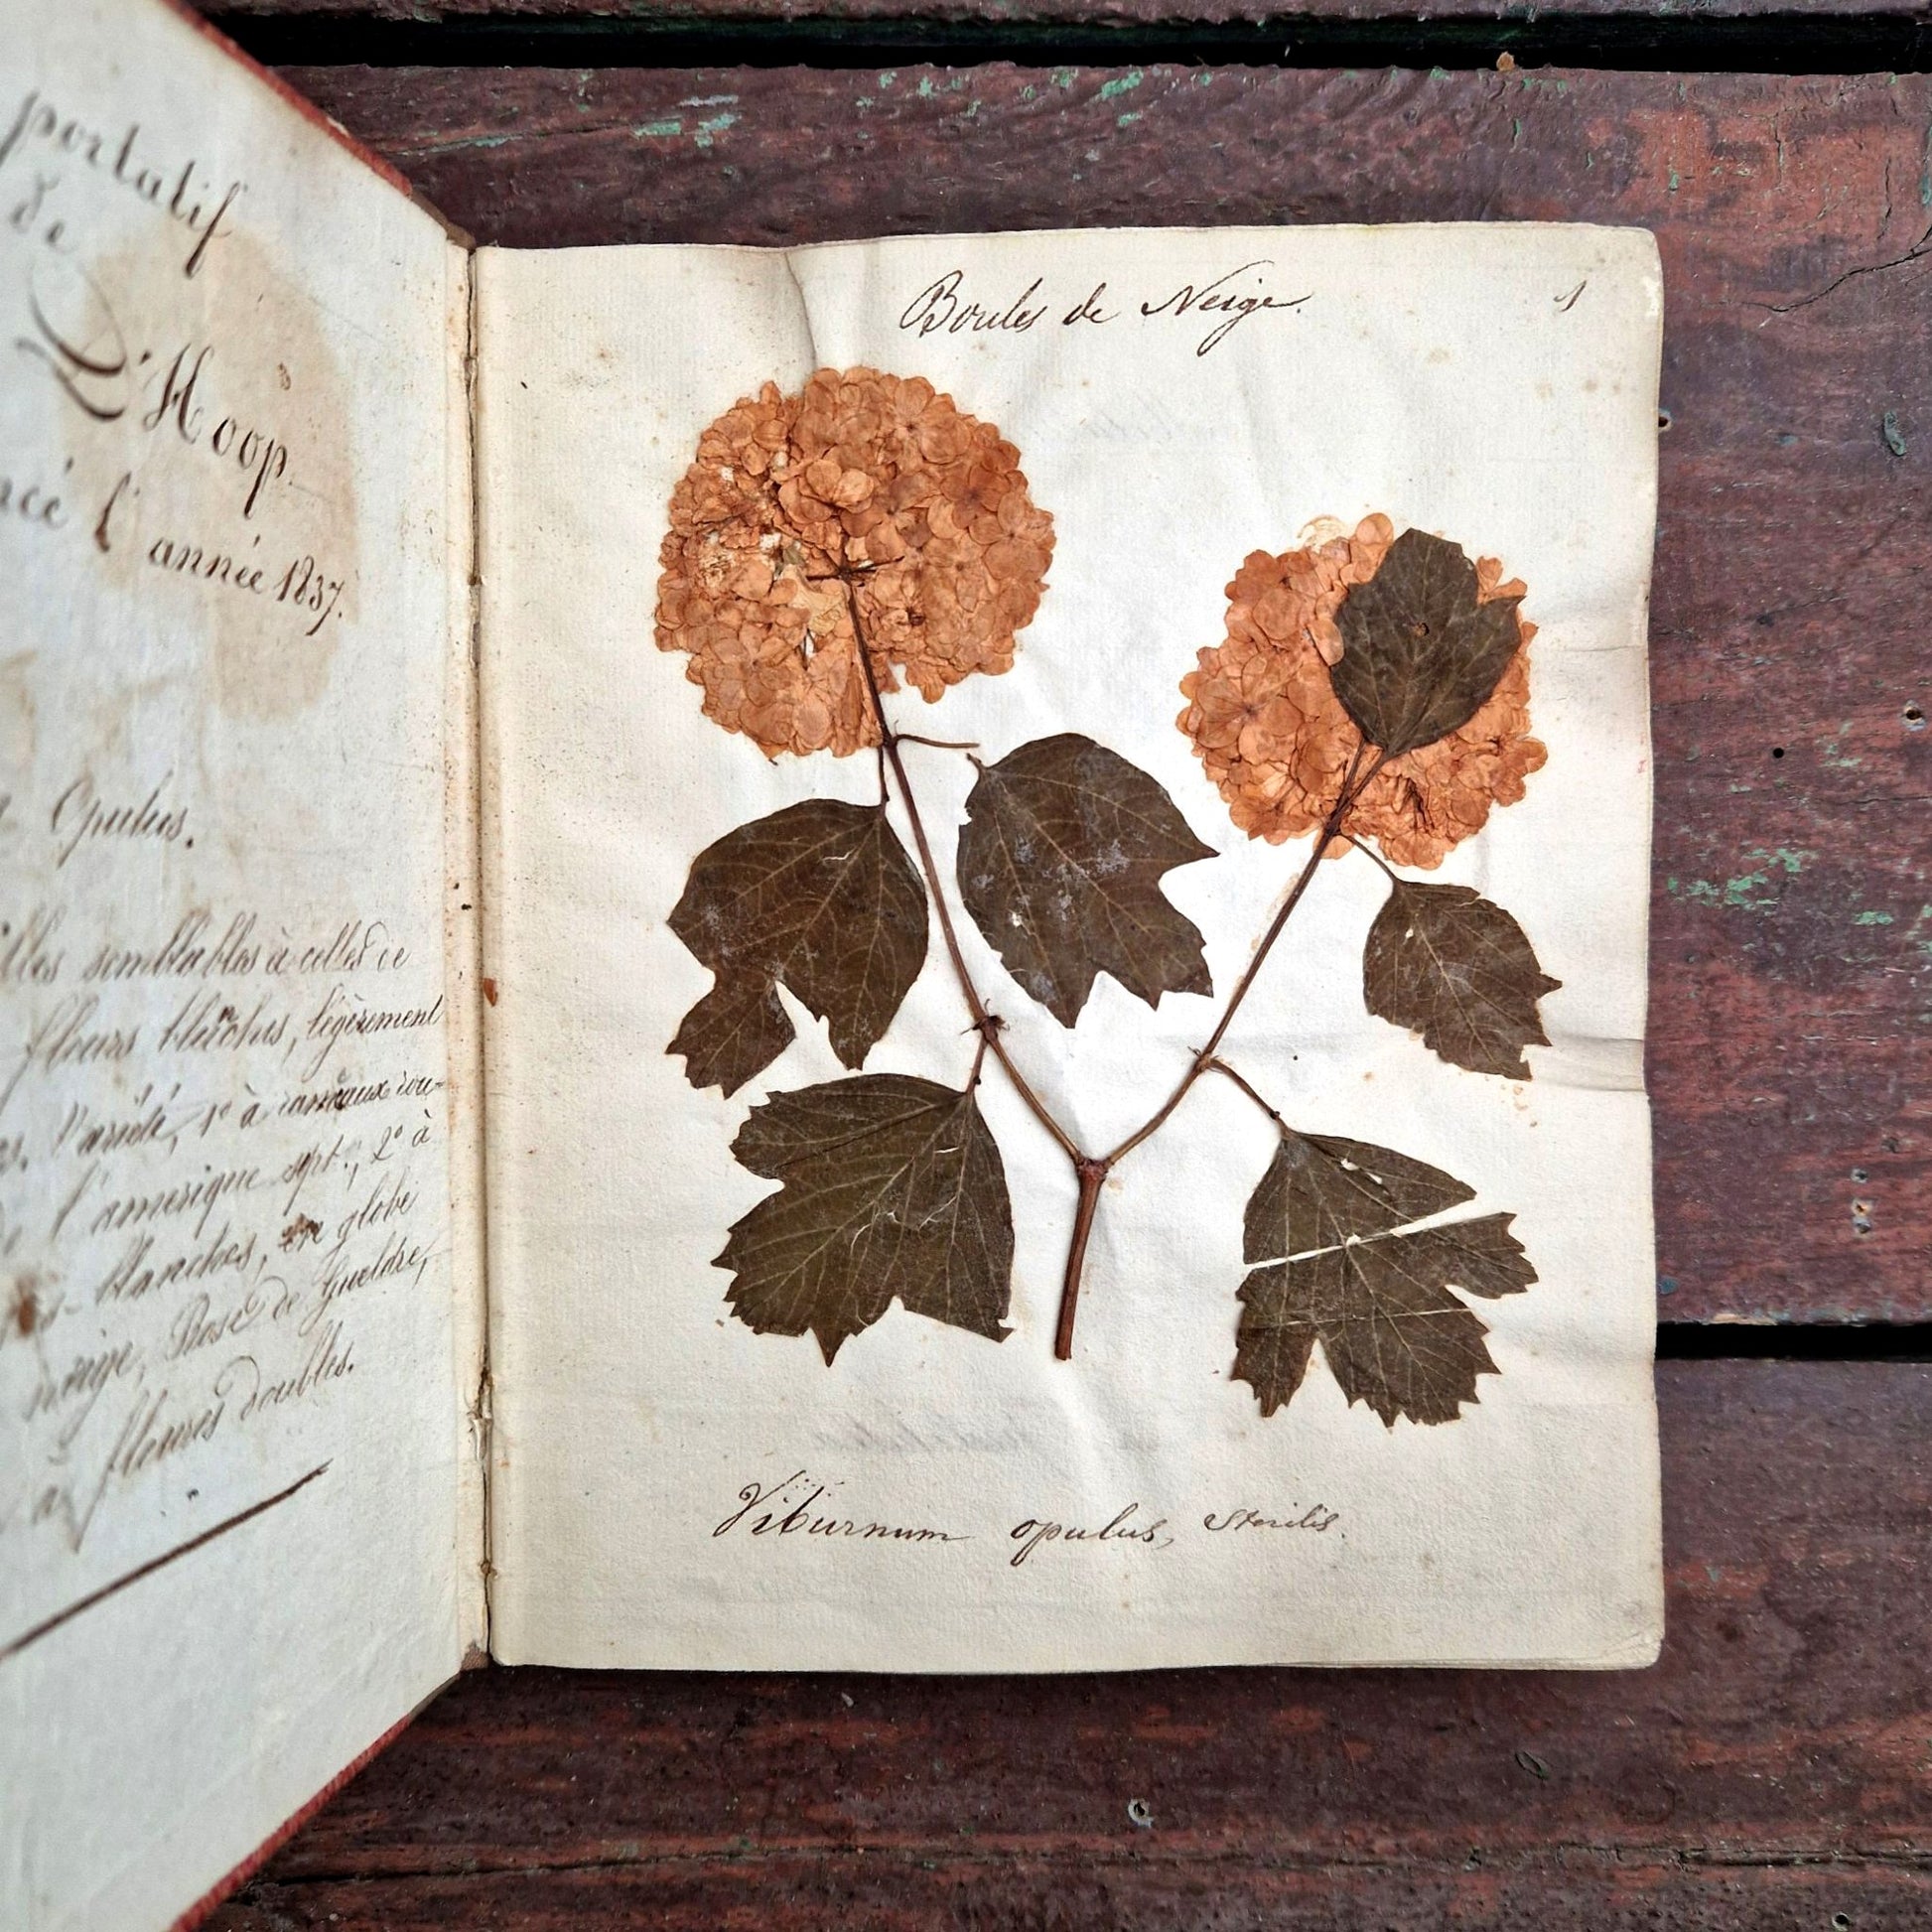 portatif
de
D'Hoop.
l'année 1837.
Opulus.
semblables à celles de
fleurs blanches, légèrement
Variété, 1° à rameaux rou-
l'amerique sept., 2° à
blanches, en globe
neige, Rose de Gueldre,
à fleurs doubles.
Boules de Neige.
1
Viburnum opulus, Sterilis.